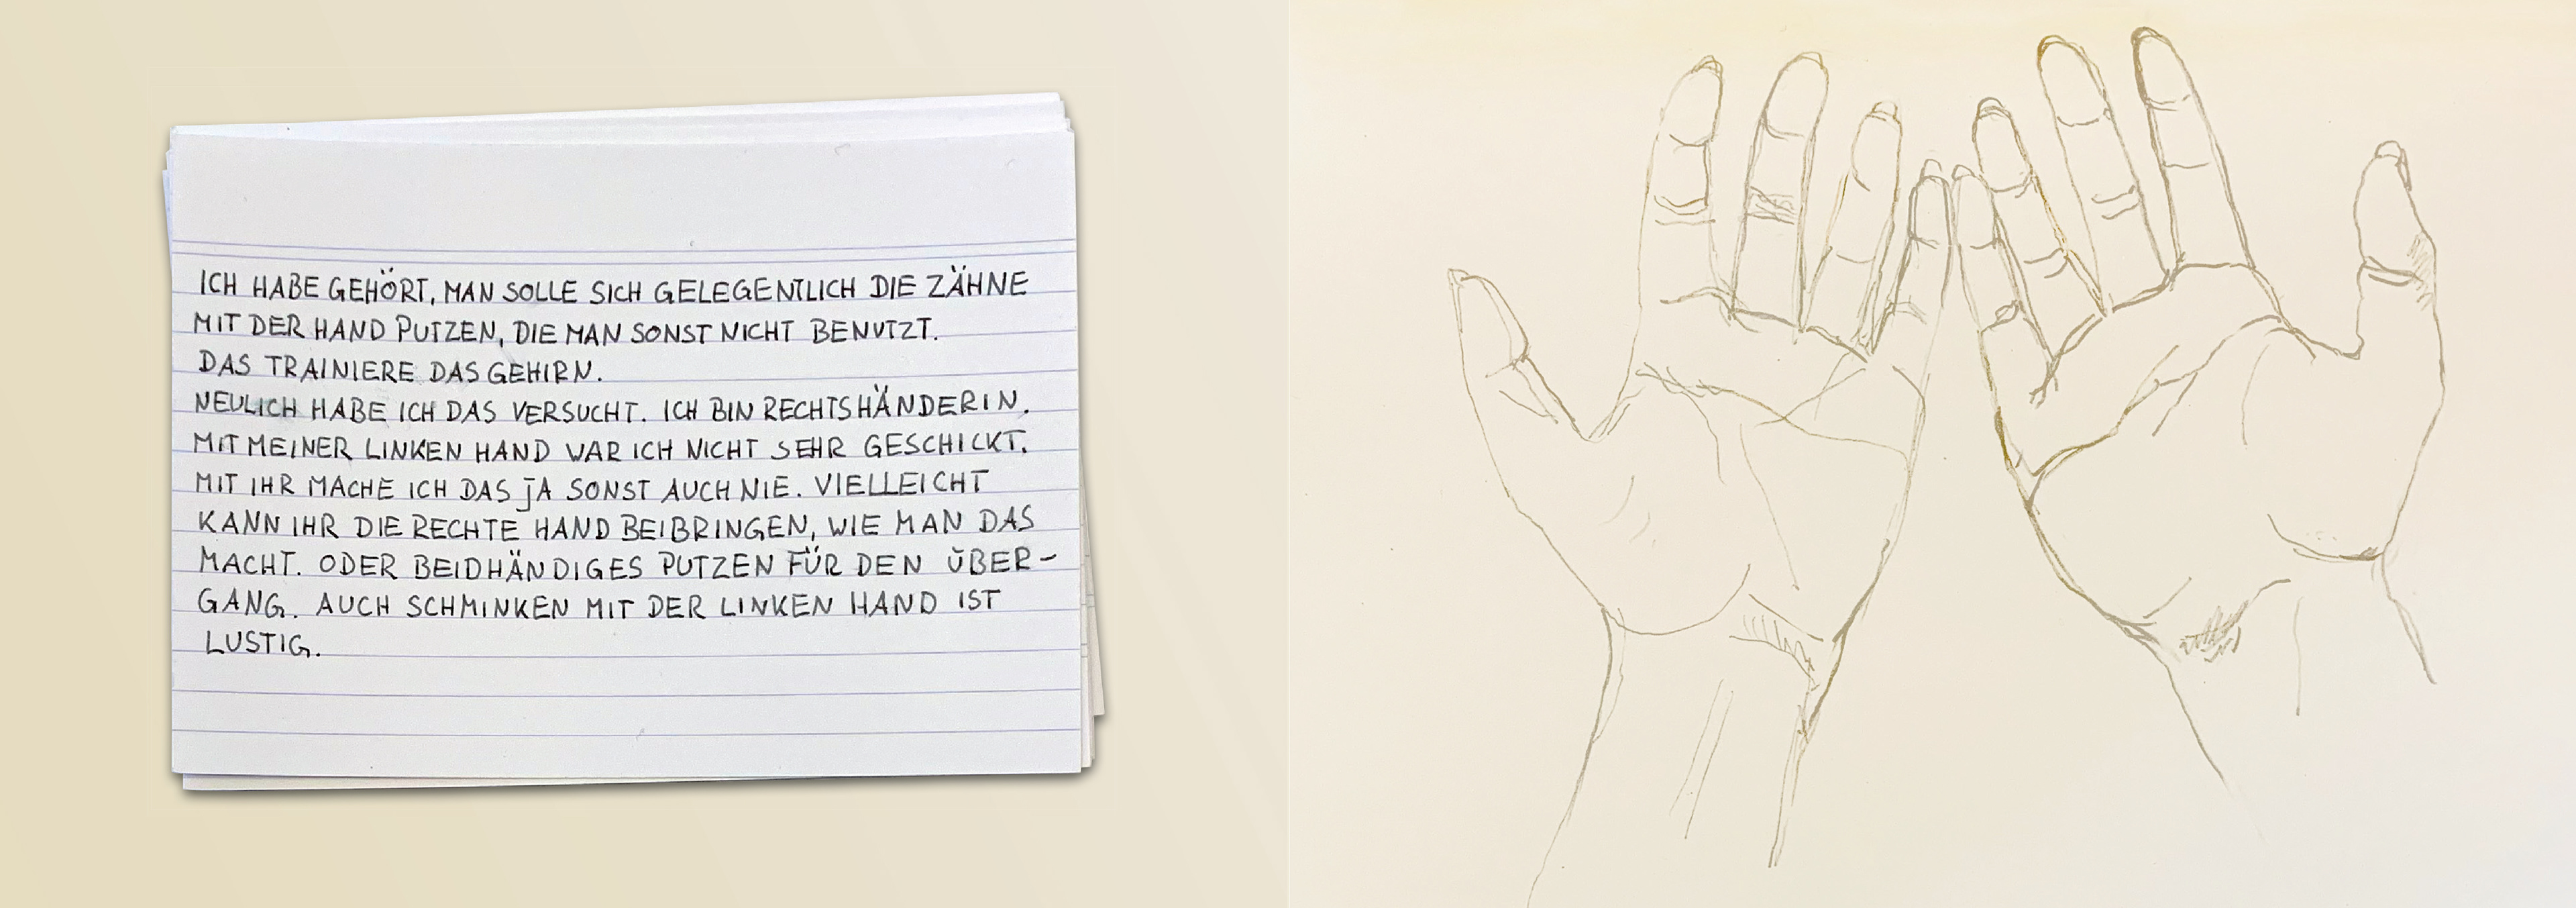 ICH HABE GEHÖRT, MAN SOLLE SICH GELEGENTLICH DIE ZÄHNE
MIT DER HAND PUTZEN, DIE MAN SONST NICHT BENUTZT.
DAS TRAINIERE DAS GEHIRN.
NEULICH HABE ICH DAS VERSUCHT. ICH BIN RECHTSHÄNDERIN.
MIT MEINER LINKEN HAND WAR ICH NICHT SEHR GESCHICKT.
MIT IHR MACHE ICH DAS JA SONST AUCH NIE. VIELLEICHT
KANN IHR DIE RECHTE HAND BEIBRINGEN, WIE MAN DAS
MACHT. ODER BEIDHÄNDIGES PUTZEN FÜR DEN ÜBER-
GANG. AUCH SCHMINKEN MIT DER LINKEN HAND IST
LUSTIG.